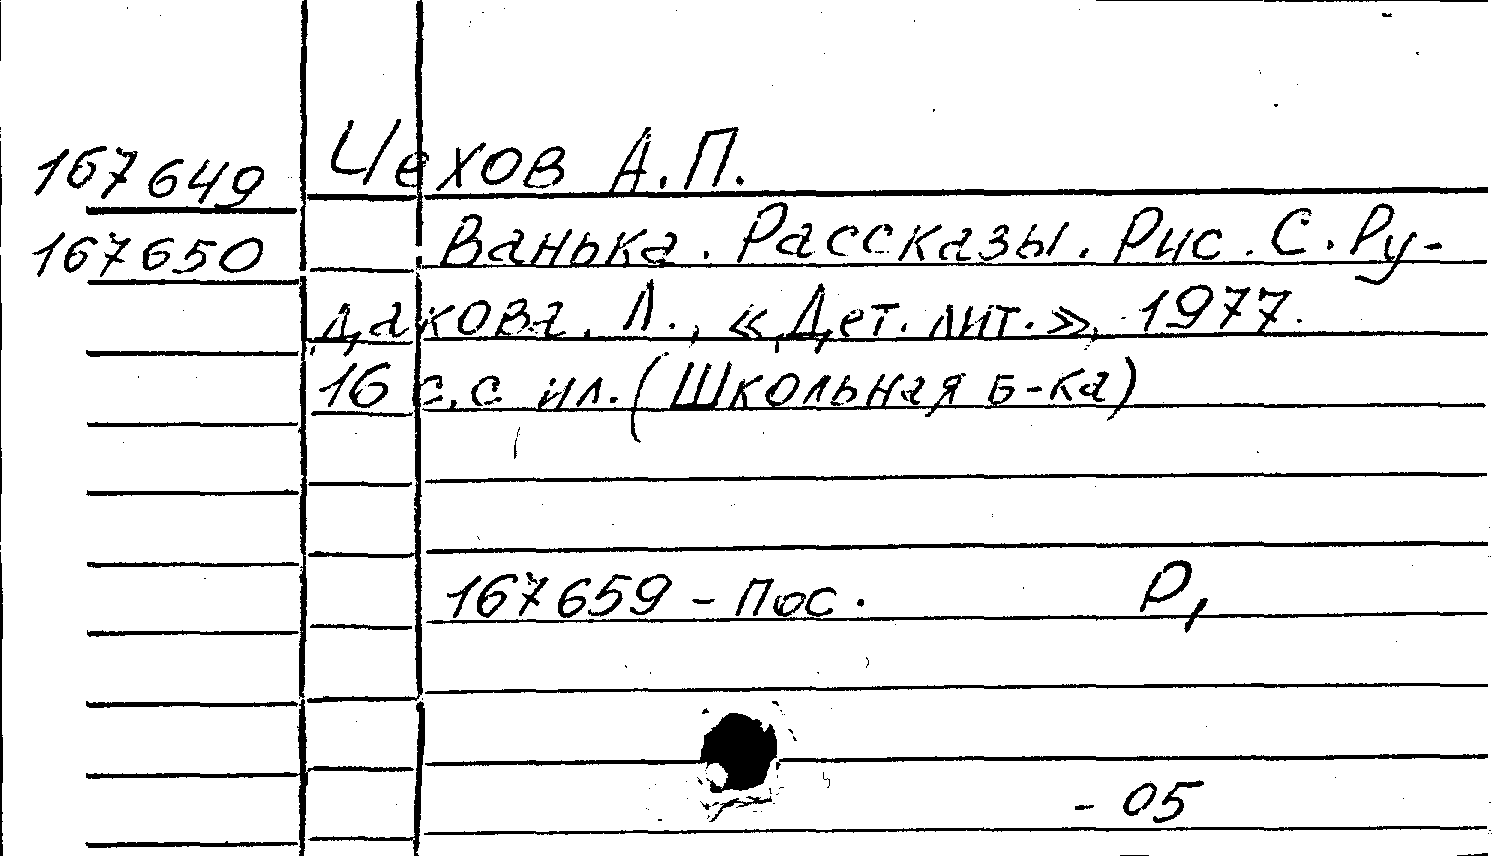 167649 Чехов А.П.
167650 Ванька. Рассказы. Рис. С. Ру-
дакова. Л., «Дет. лит.», 1977.
16 с.с ил. (Школьная б-ка)
167659 - пос. Р,
- 05